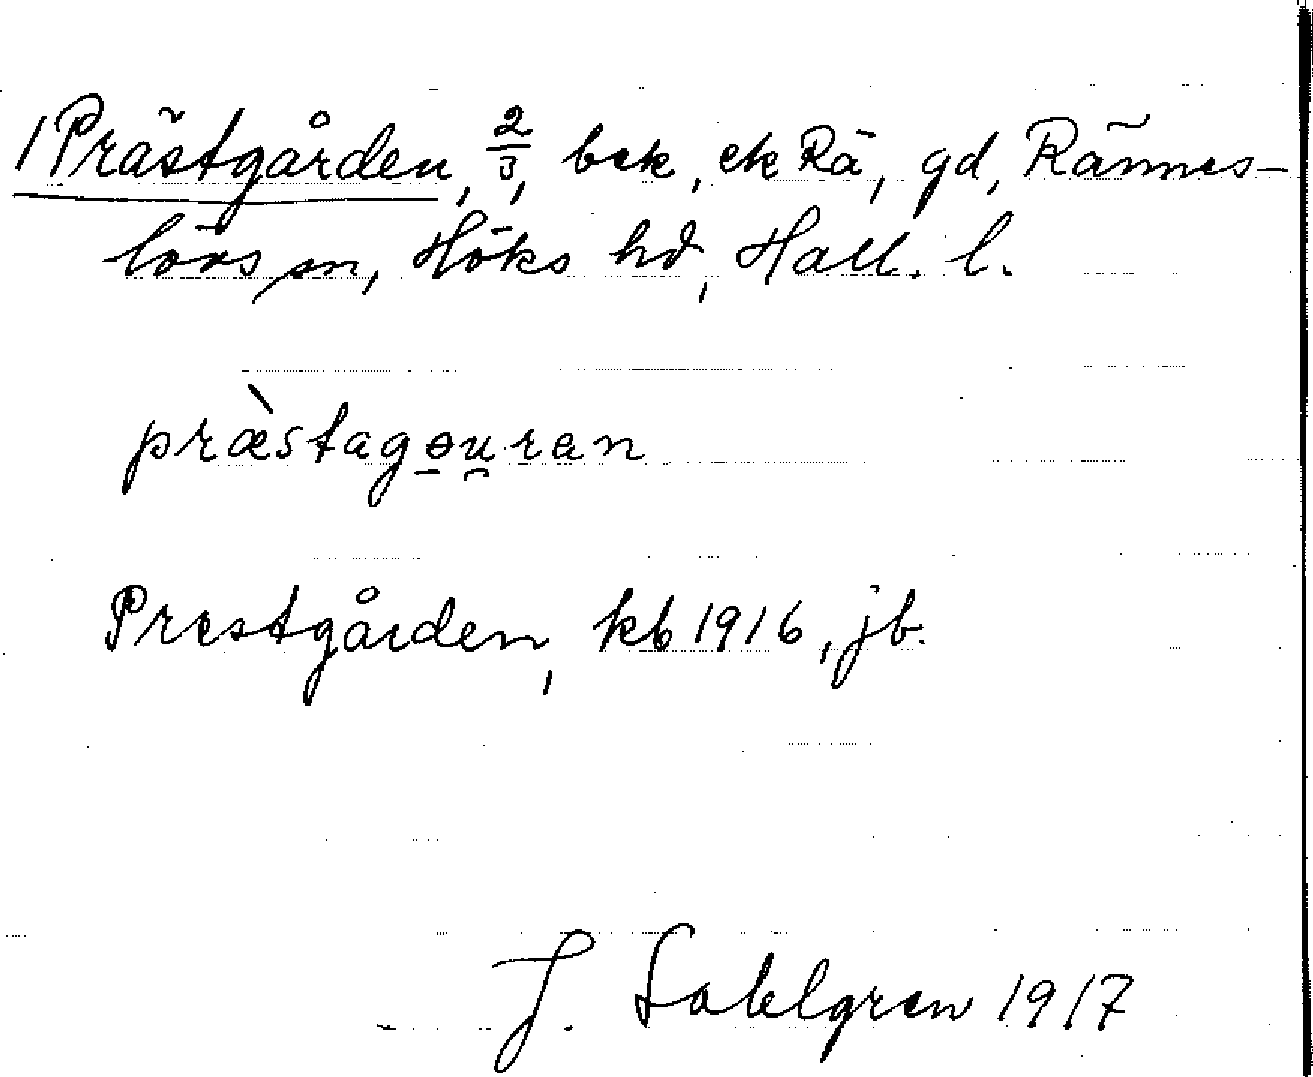 1 Prästgården, 2/3, bek, ek Rä, gd, Rännes-
lövs sn, Höks hd, Hall. l.
præ̀stagɵu̯ran
Prestgården, kb 1916, jb.
J. Sahlgren 1917